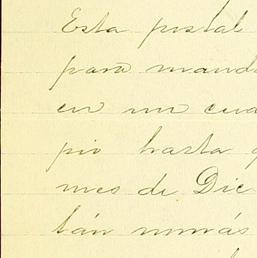 Esta postal
para mand
en un cua
pio hasta q
mes de Dic
tán nomás